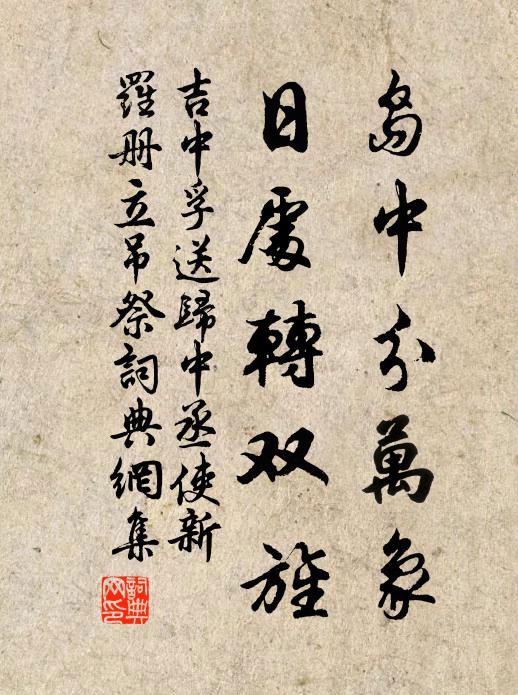 島中分萬象
日處轉双旌
吉中孚送歸中丞使新
羅册立吊祭詞典網集
詞典网印